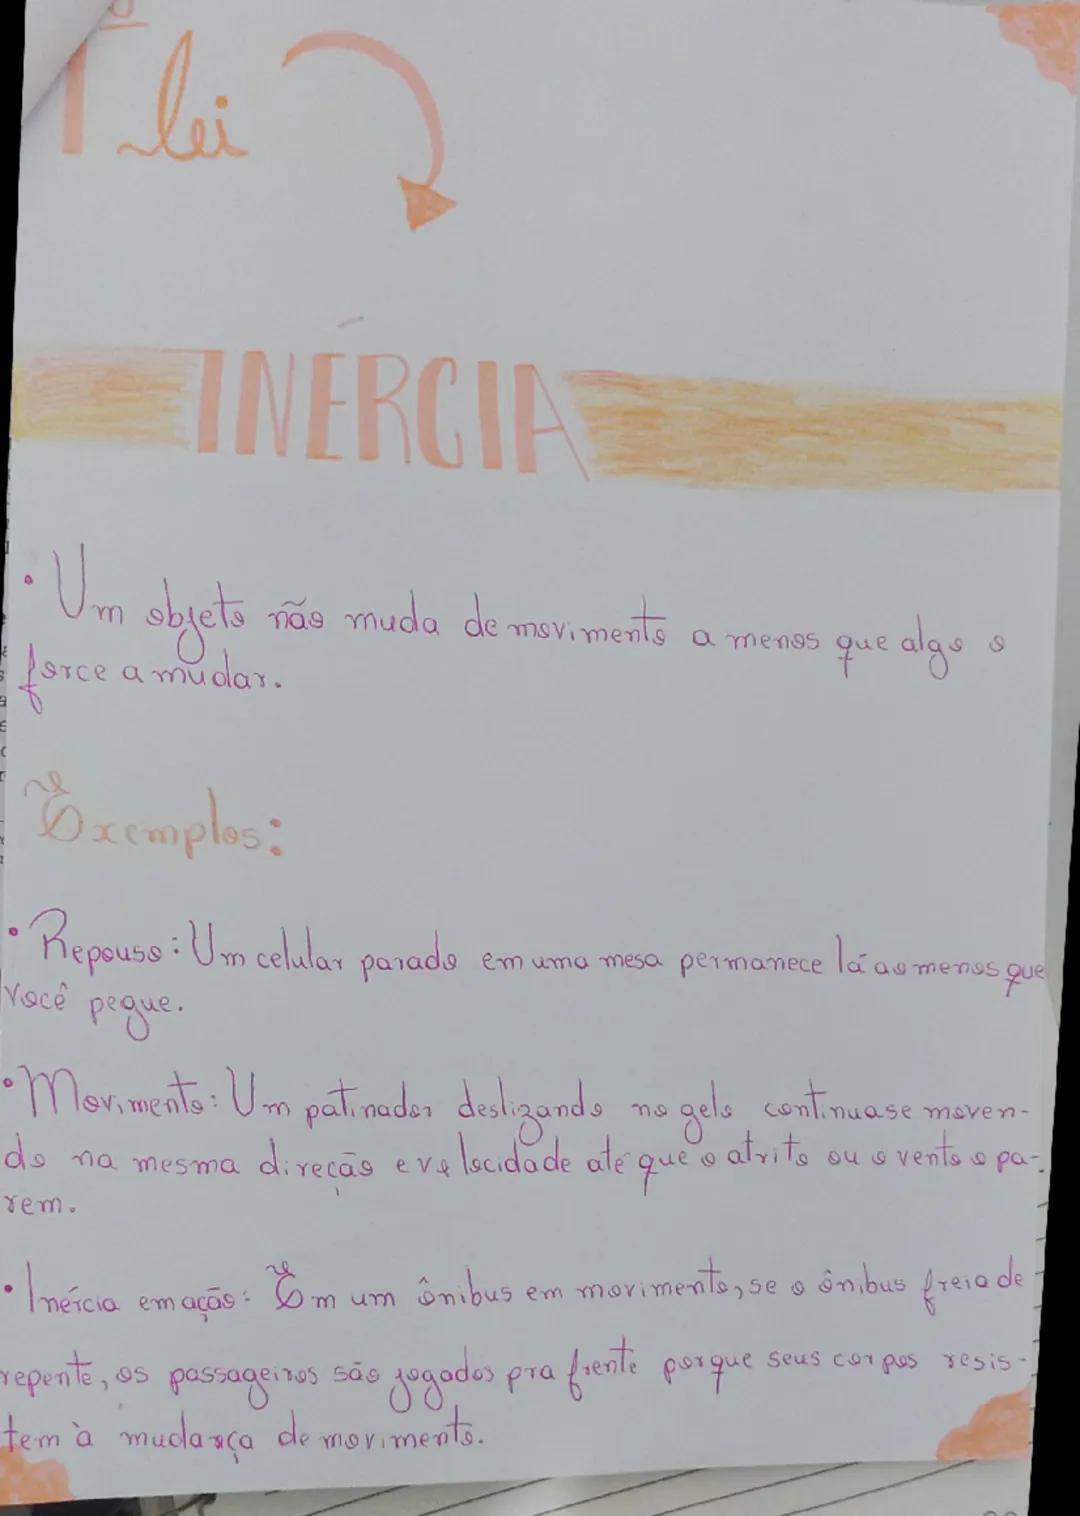 1º lei
INÉRCIA
• Um objeto não muda de movimento a menos que algo o
force a mudar.
Exemplos:
• Repouso: Um celular parado em uma mesa permanece lá ao menos que
você pegue.
• Movimento: Um patinador deslizando no gelo continua se moven-
do na mesma direção e velocidade até que o atrito ou o vento o pa-
rem.
• Inércia em ação: Em um ônibus em movimento, se o ônibus freia de
repente, os passageiros são jogados pra frente porque seus corpos resis-
tem à mudança de movimento.